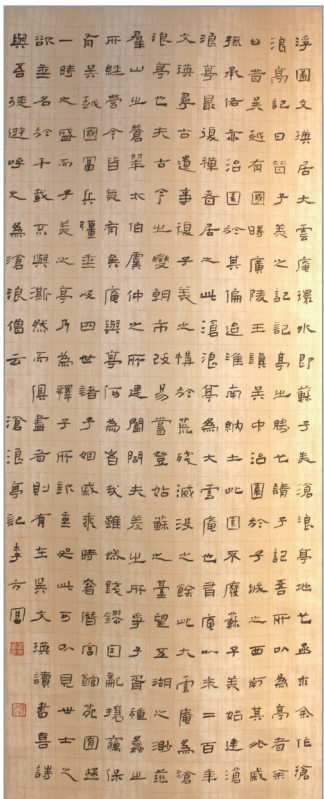 浮圖文瑛居大雲庵環水即蘇子美滄浪亭地也亟求余作滄
浪亭記曰昔子美之記記亭之勝也請子記吾所以為亭者余
曰昔吳越有國時廣陵王鎮吳中治園於子城之西南其外戚
孫承佑亦治園於其偏迨淮南納土此園不廢蘇子美始建滄
浪亭最後禪者居之此滄浪亭為大雲庵也有庵以來二百年
文瑛尋古遺事復子美之構於荒殘滅没之餘此大雲庵為滄
浪亭也夫古今之變朝市改易嘗登姑蘇之臺望五湖之渺茫
羣山之蒼翠太伯虞仲之所建闔閭夫差之所爭子胥種蠡之
所經營今皆無有矣庵與亭何為者哉雖然錢鏐因亂攘竊保
有吳越國富兵彊垂及四世諸子姻戚乘時奢僭宮館苑囿極
一時之盛而子美之亭乃為釋子所欽重如此可以見世士之
欲垂名於千載不與澌然而俱盡者則有在矣文瑛讀書喜詩
與吾徒遊呼之為滄浪僧云 滄浪亭記 李方圓